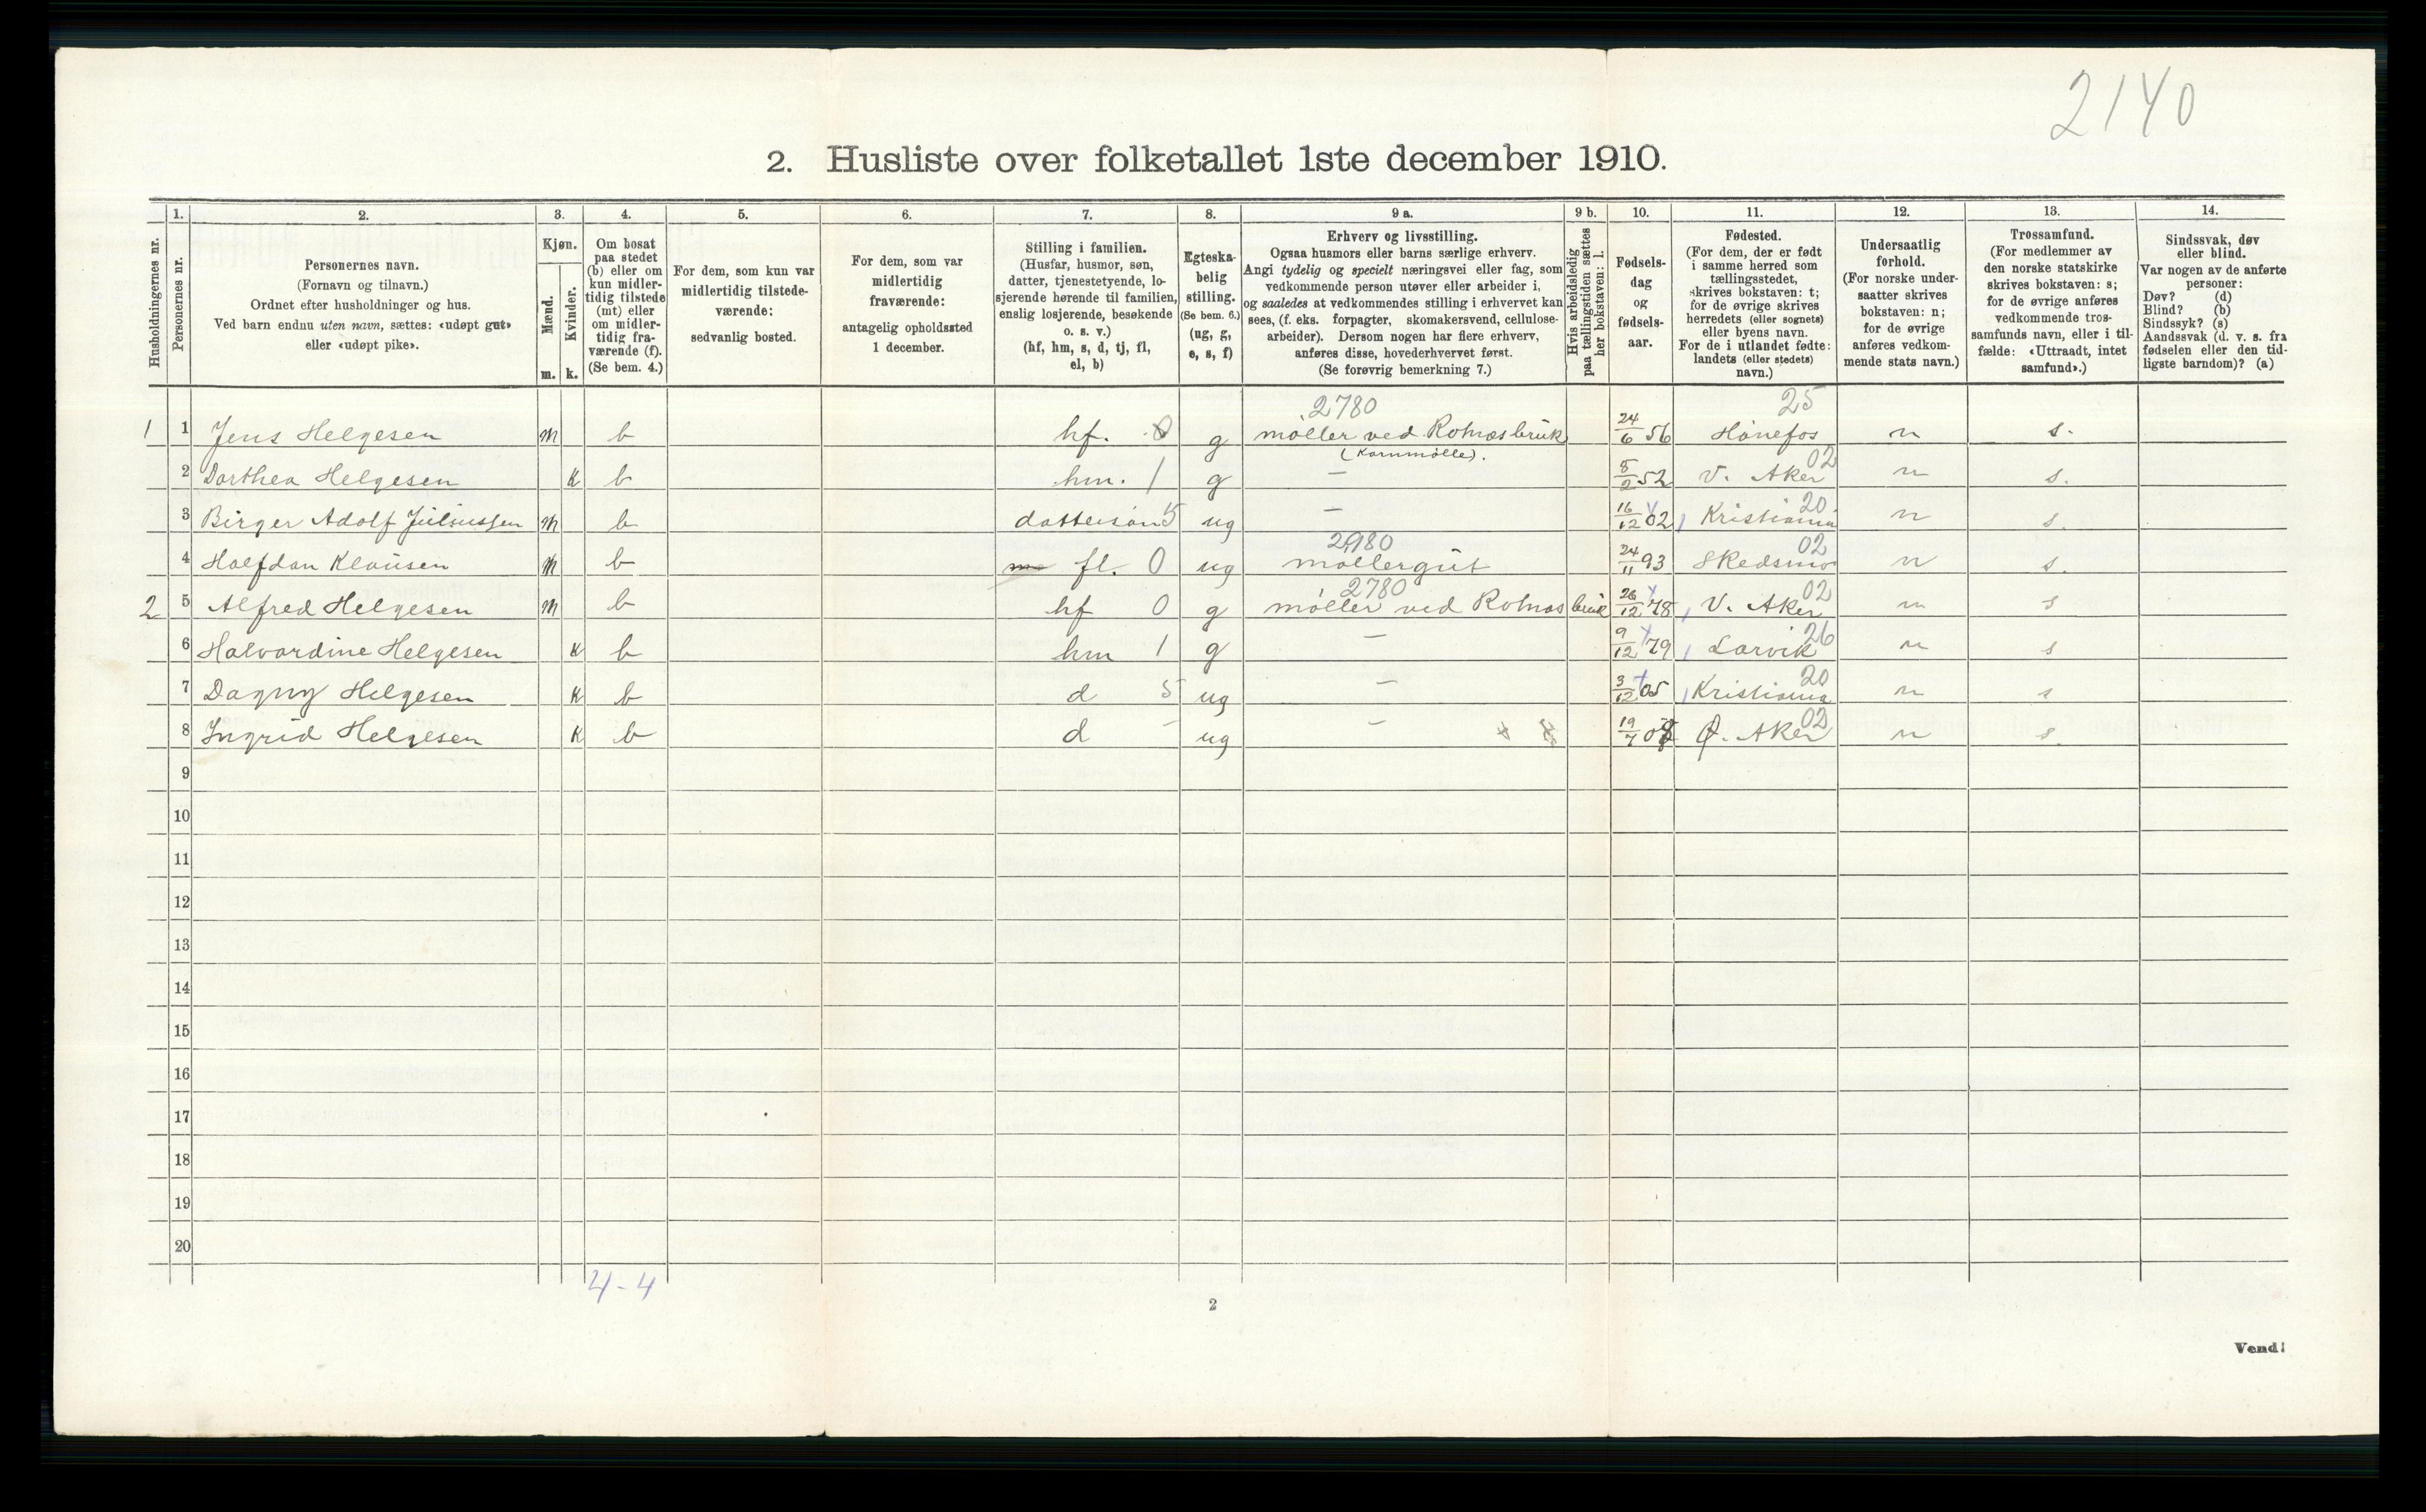 2140
2. Husliste over folketallet 1ste december 1910.
Husholdningernes nr.
1. Personernes nr.
2. Personernes navn.
(Fornavn og tilnavn.)
Ordnet efter husholdninger og hus.
Ved barn endnu uten navn, sættes: «udøpt gut»
eller «udøpt pike».
3. Kjøn.
Mænd. m.
Kvinder. k.
4. Om bosat
paa stedet
(b) eller om
kun midler-
tidig tilstede
(mt) eller
om midler-
tidig fra-
værende (f).
(Se bem. 4.)
5. For dem, som kun var
midlertidig tilstede-
værende:
sedvanlig bosted.
6. For dem, som var
midlertidig
fraværende:
antagelig opholdssted
1 december.
7. Stilling i familien.
(Husfar, husmor, søn,
datter, tjenestetyende, lo-
sjerende hørende til familien,
enslig losjerende, besøkende
o. s. v.)
(hf, hm, s, d, tj, fl,
el, b)
8. Egteska-
belig
stilling.
(Se bem. 6.)
(ug, g,
e, s, f)
9 a. Erhverv og livsstilling.
Ogsaa husmors eller barns særlige erhverv.
Angi tydelig og specielt næringsvei eller fag, som
vedkommende person utøver eller arbeider i,
og saaledes at vedkommendes stilling i erhvervet kan
sees, (f. eks. forpagter, skomakersvend, cellulose-
arbeider). Dersom nogen har flere erhverv,
anføres disse, hovederhvervet først.
(Se forøvrig bemerkning 7.)
9 b. Hvis arbeidsledig
paa tællingstiden sættes
her bokstaven: l.
10. Fødsels-
dag
og
fødsels-
aar.
11. Fødested.
(For dem, der er født
i samme herred som
tællingsstedet,
skrives bokstaven: t;
for de øvrige skrives
herredets (eller sognets)
eller byens navn.
For de i utlandet fødte:
landets (eller stedets)
navn.)
12. Undersaatlig
forhold.
(For norske under-
saatter skrives
bokstaven: n;
for de øvrige
anføres vedkom-
mende stats navn.)
13. Trossamfund.
(For medlemmer av
den norske statskirke
skrives bokstaven: s;
for de øvrige anføres
vedkommende tros-
samfunds navn, eller i til-
fælde: «Uttraadt, intet
samfund».)
14. Sindssvak, døv
eller blind.
Var nogen av de anførte
personer:
Døv? (d)
Blind? (b)
Sindssyk? (s)
Aandssvak (d. v. s. fra
fødselen eller den tid-
ligste barndom)? (a)
2780 25
1 1 Jens Helgesen m b hf. 0 g møller ved Rolnæs bruk 24/6 56 Hønefos n s.
(Kornmølle). 02
2 Dorthea Helgesen k b hm. 1 g — 5/2 52 V. Aker n s.
20
3 Birger Adolf Juliussen m b dattersøn 5 ug — 16/12 02 Kristiania n s.
2980 02
4 Halfdan Klausen m b fl. 0 ug møllergut 24/11 93 Skedsmo n s.
2780 02
2 5 Alfred Helgesen m b hf 0 g møller ved Rolnæs bruk 26/12 78 V. Aker n s
26
6 Halvardine Helgesen k b hm 1 g — 9/12 79 Larvik n s
20
7 Dagny Helgesen k b d 5 ug — 3/12 05 Kristiania n s
02
8 Ingrid Helgesen k b d - ug — 19/7 08 Ø. Aker n s.
9
10
11
12
13
14
15
16
17
18
19
20
4-4
2
Vend!